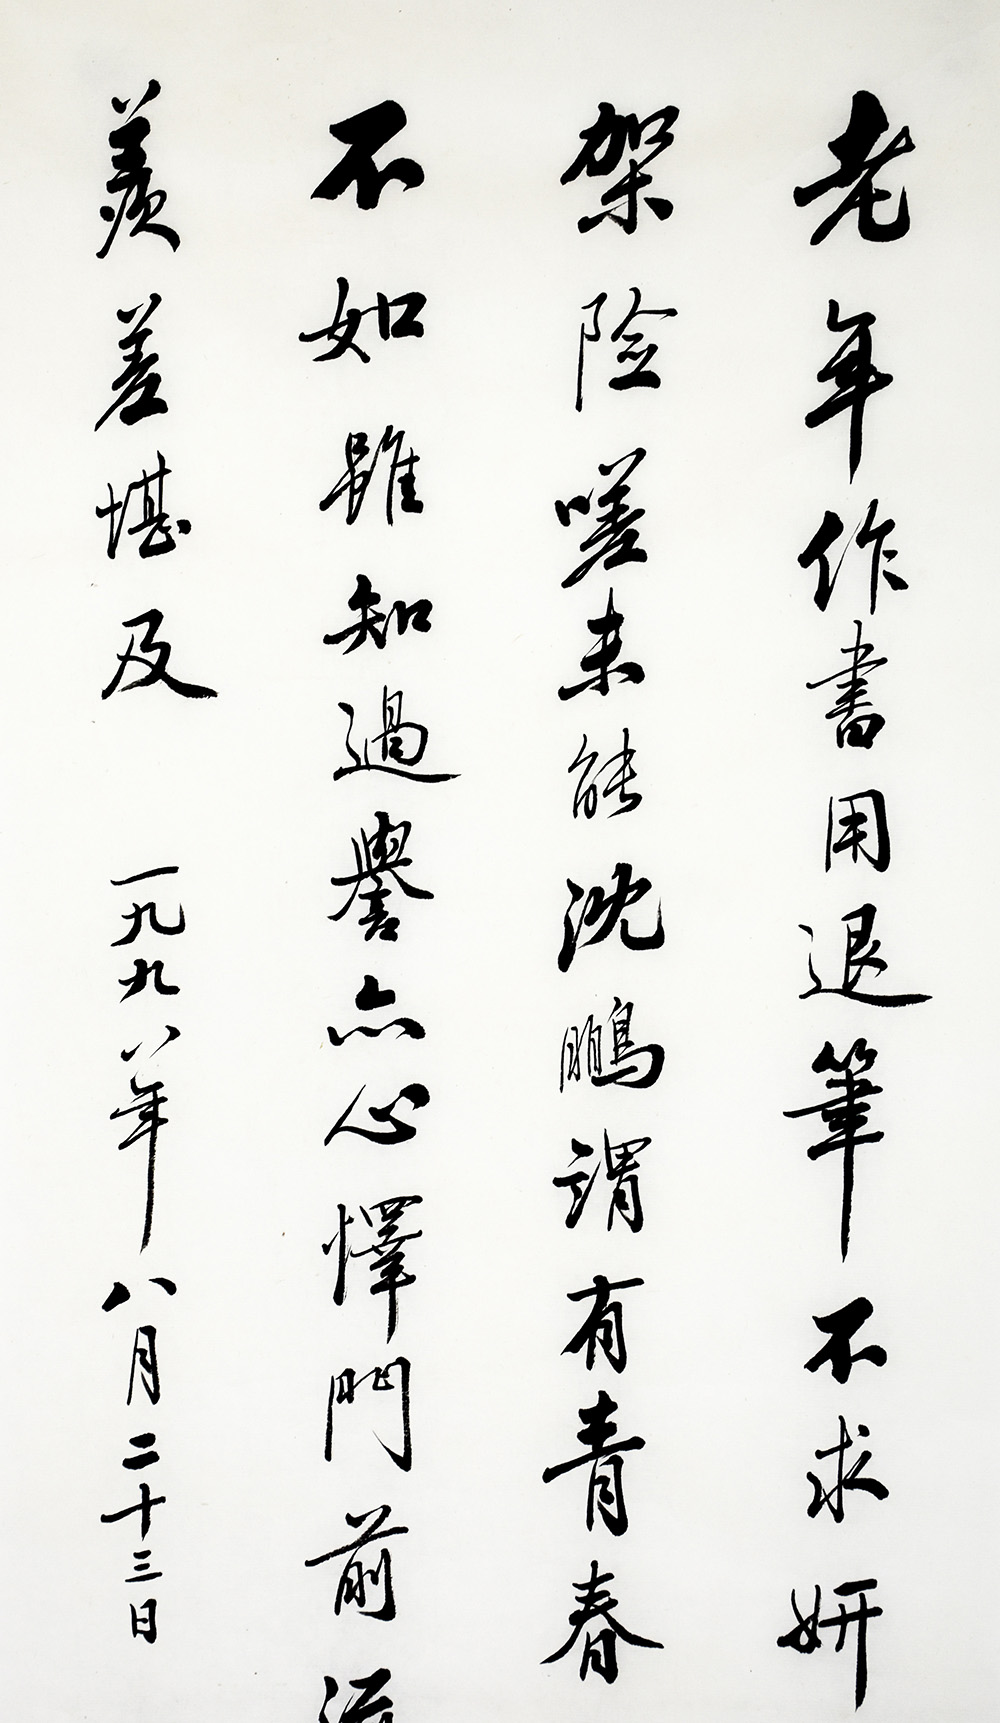 老年作書用退筆不求妍
架險嗟未能沈鵬謂有青春
不如雖知過譽亦心懌門前
羨差堪及 一九九八年八月二十三日